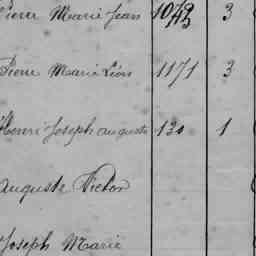 Pierre Marie Jean 1043 3
Pierre Marie Léon 1171 3
Henri Joseph auguste 130 1
auguste Victor
Joseph Marie